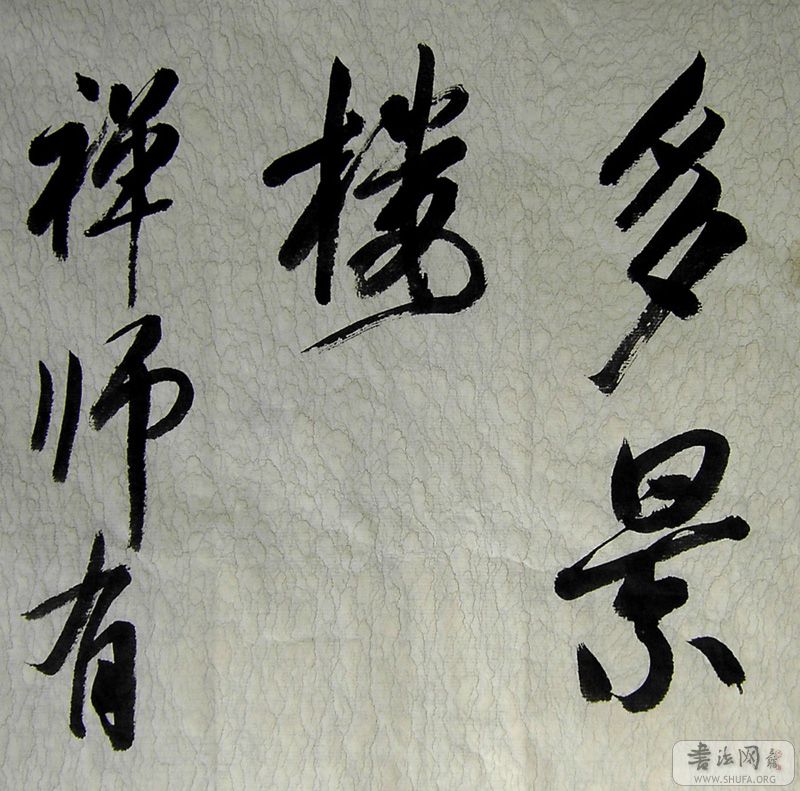 多景
楼
禅师有
书法网
WWW.SHUFA.ORG